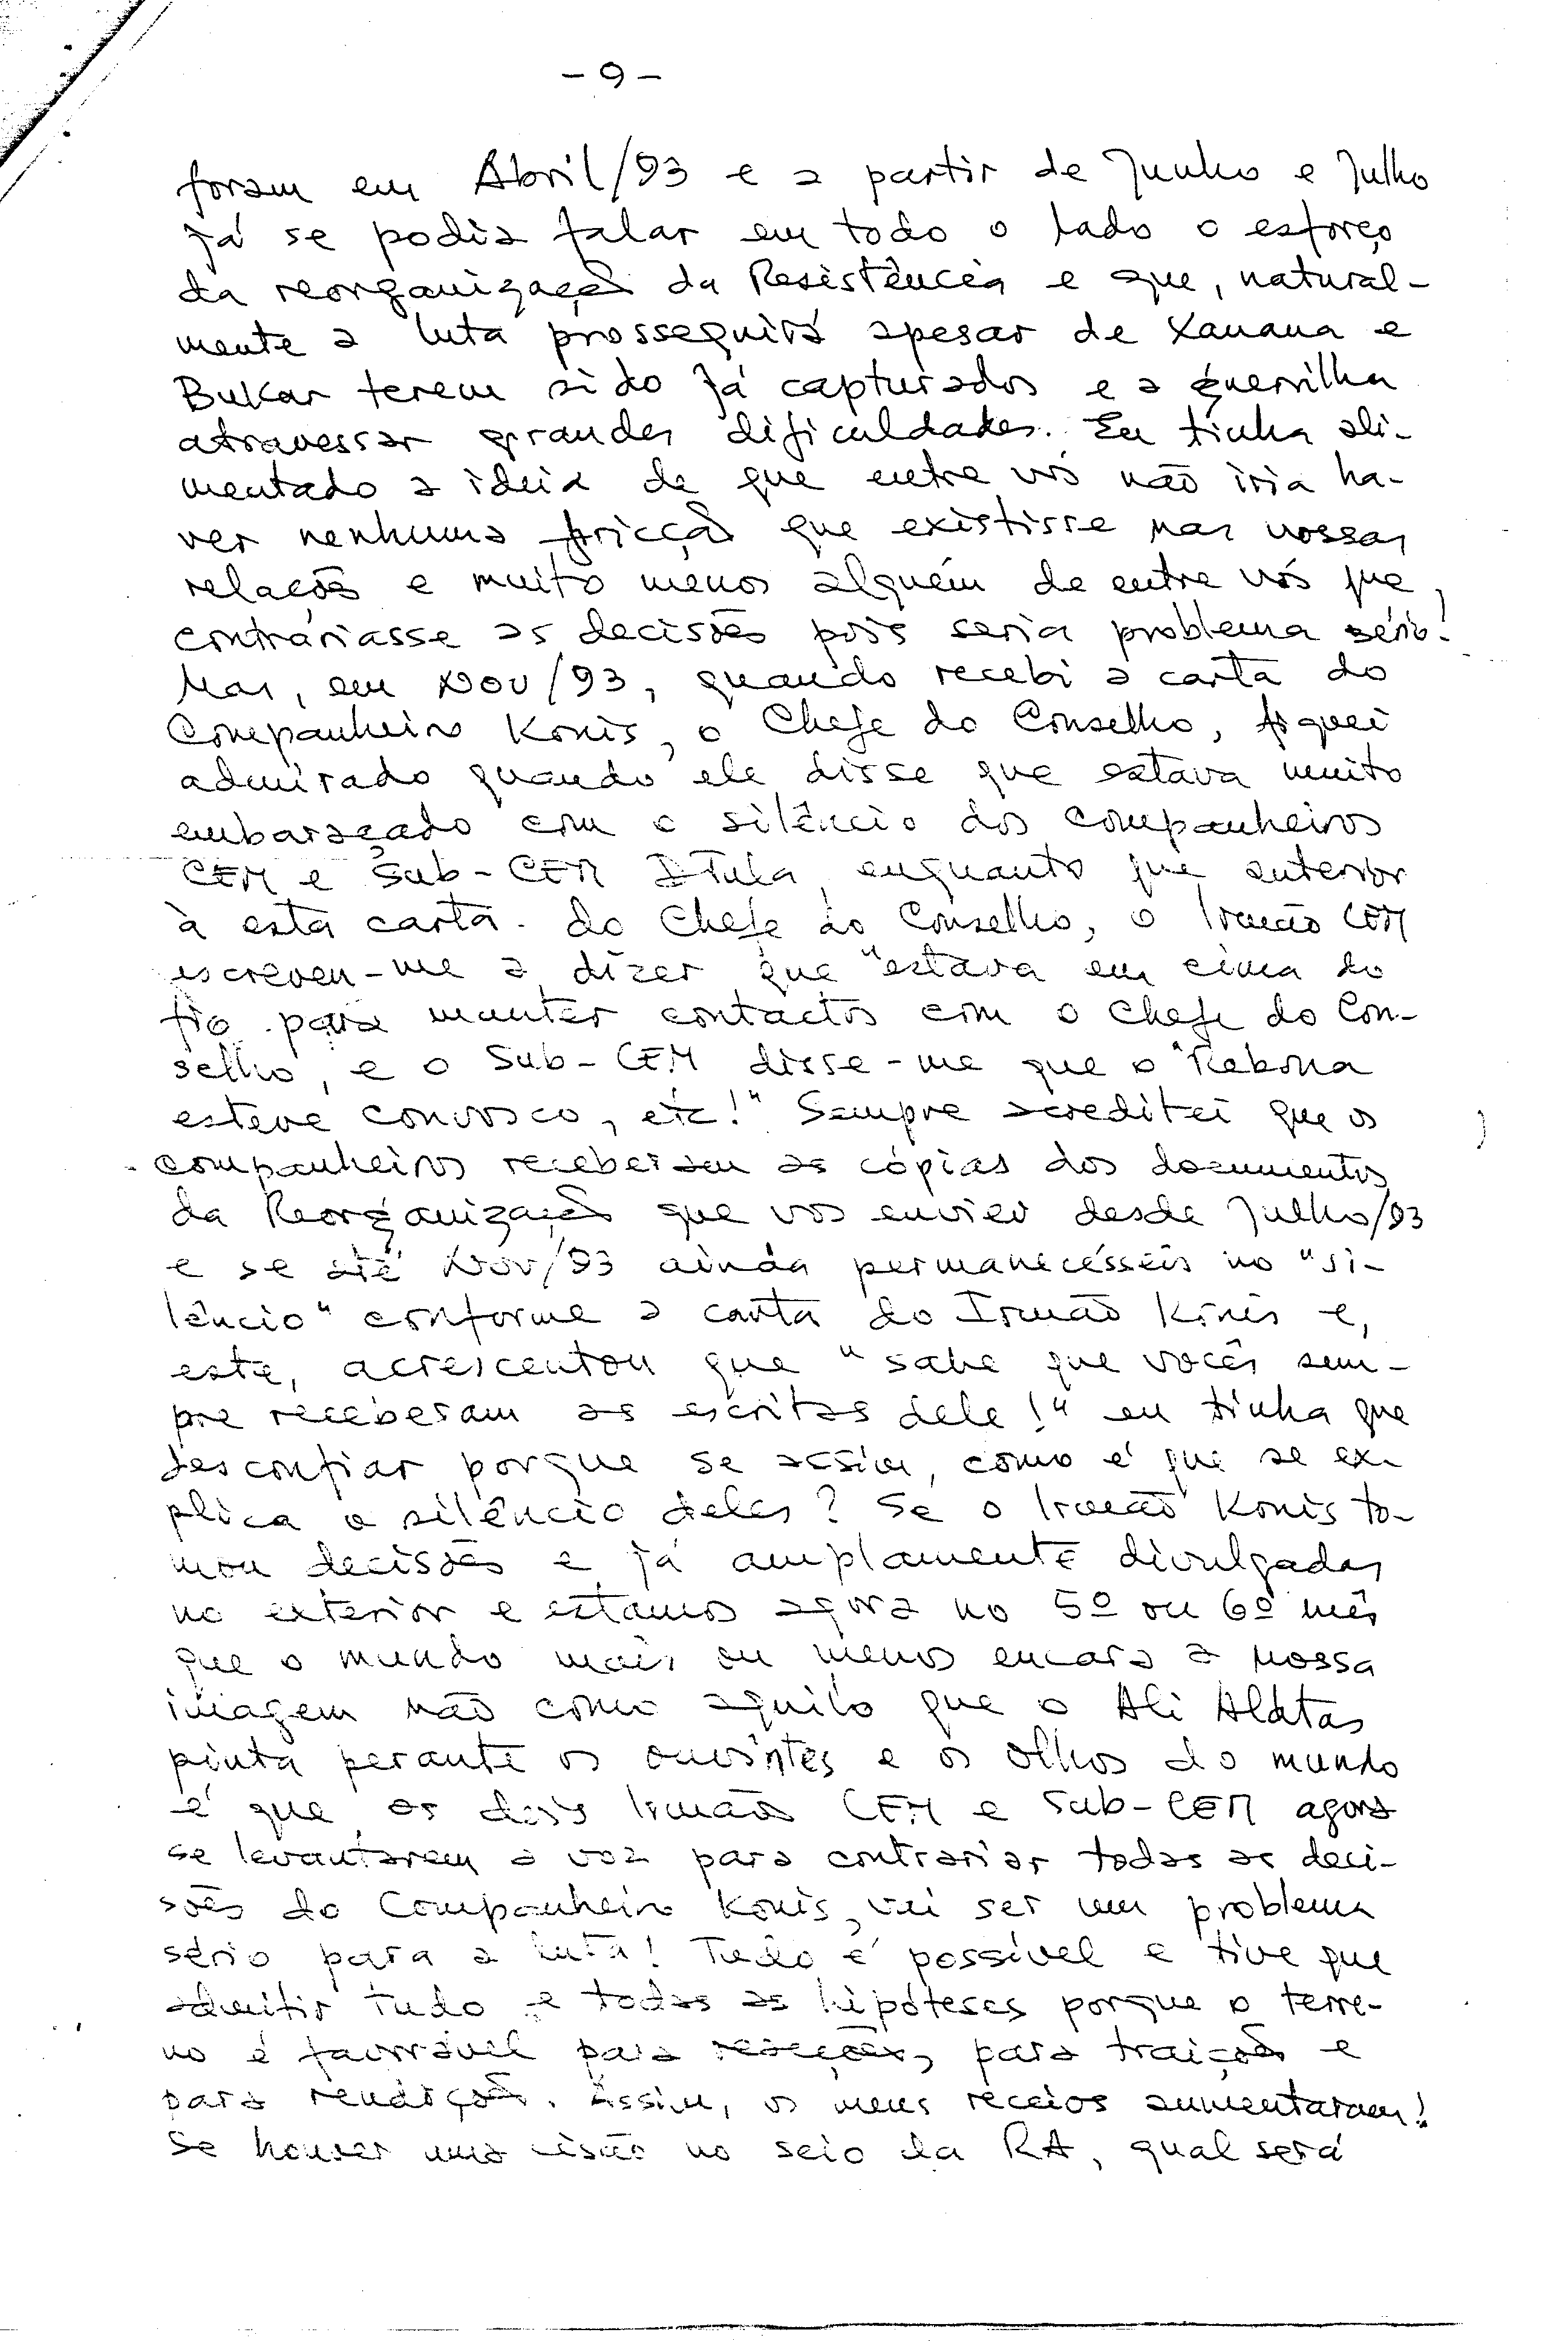 - 9 -
foram em Abril/93 e a partir de Junho e Julho
já se podia falar em todo o lado o esforço
da reorganização da Resistência e que, natural-
mente a luta prosseguirá apesar de Xanana e
Bukar terem sido já capturados e a guerrilha
atravessar grandes dificuldades. Eu tinha ali-
mentado a ideia de que entre vós não iria ha-
ver nenhuma fricção que existisse nas vossas
relações e muito menos alguém de entre vós que
contrariasse as decisões pois seria problema sério!
Mas, em Nov/93, quando recebi a carta do
Companheiro Konis, o Chefe do Conselho, fiquei
admirado quando ele disse que estava muito
embaraçado com o silêncio dos companheiros
CEM e Sub-CEM enquanto que anterior
à esta carta do Chefe do Conselho, o Irmão CEM
escreveu-me a dizer que "estava em cima do
fio para manter contactos com o Chefe do Con-
selho, e o Sub-CEM disse-me que o "Rekona
esteve convosco, etc!" Sempre acreditei que os
companheiros receberam as cópias dos documentos
da Reorganização que vos enviei desde Julho/93
e se até Nov/93 ainda permanecésseis no "si-
lêncio" conforme a carta do Irmão Konis e,
este, acrescentou que "sabe que vocês sem-
pre receberam as escritas dele!" eu tinha que
desconfiar porque se assim, como é que se ex-
plica o silêncio deles? Se o Irmão Konis to-
mou decisões e já amplamente divulgadas
no exterior e estamos agora no 5º ou 6º mês
que o mundo mais ou menos encara a nossa
imagem não como aquilo que o Ali Alatas
pinta perante os ouvintes e os olhos do mundo
é que os dois Irmãos CEM e Sub-CEM agora
se levantarem a voz para contrariar todas as deci-
sões do Companheiro Konis, vai ser um problema
sério para a luta! Tudo é possível e tive que
admitir tudo e todas as hipóteses porque o terre-
no é favorável para reacções, para traição e
para rendição. Assim, os meus receios aumentaram!
Se houver uma cisão no seio da RA, qual será